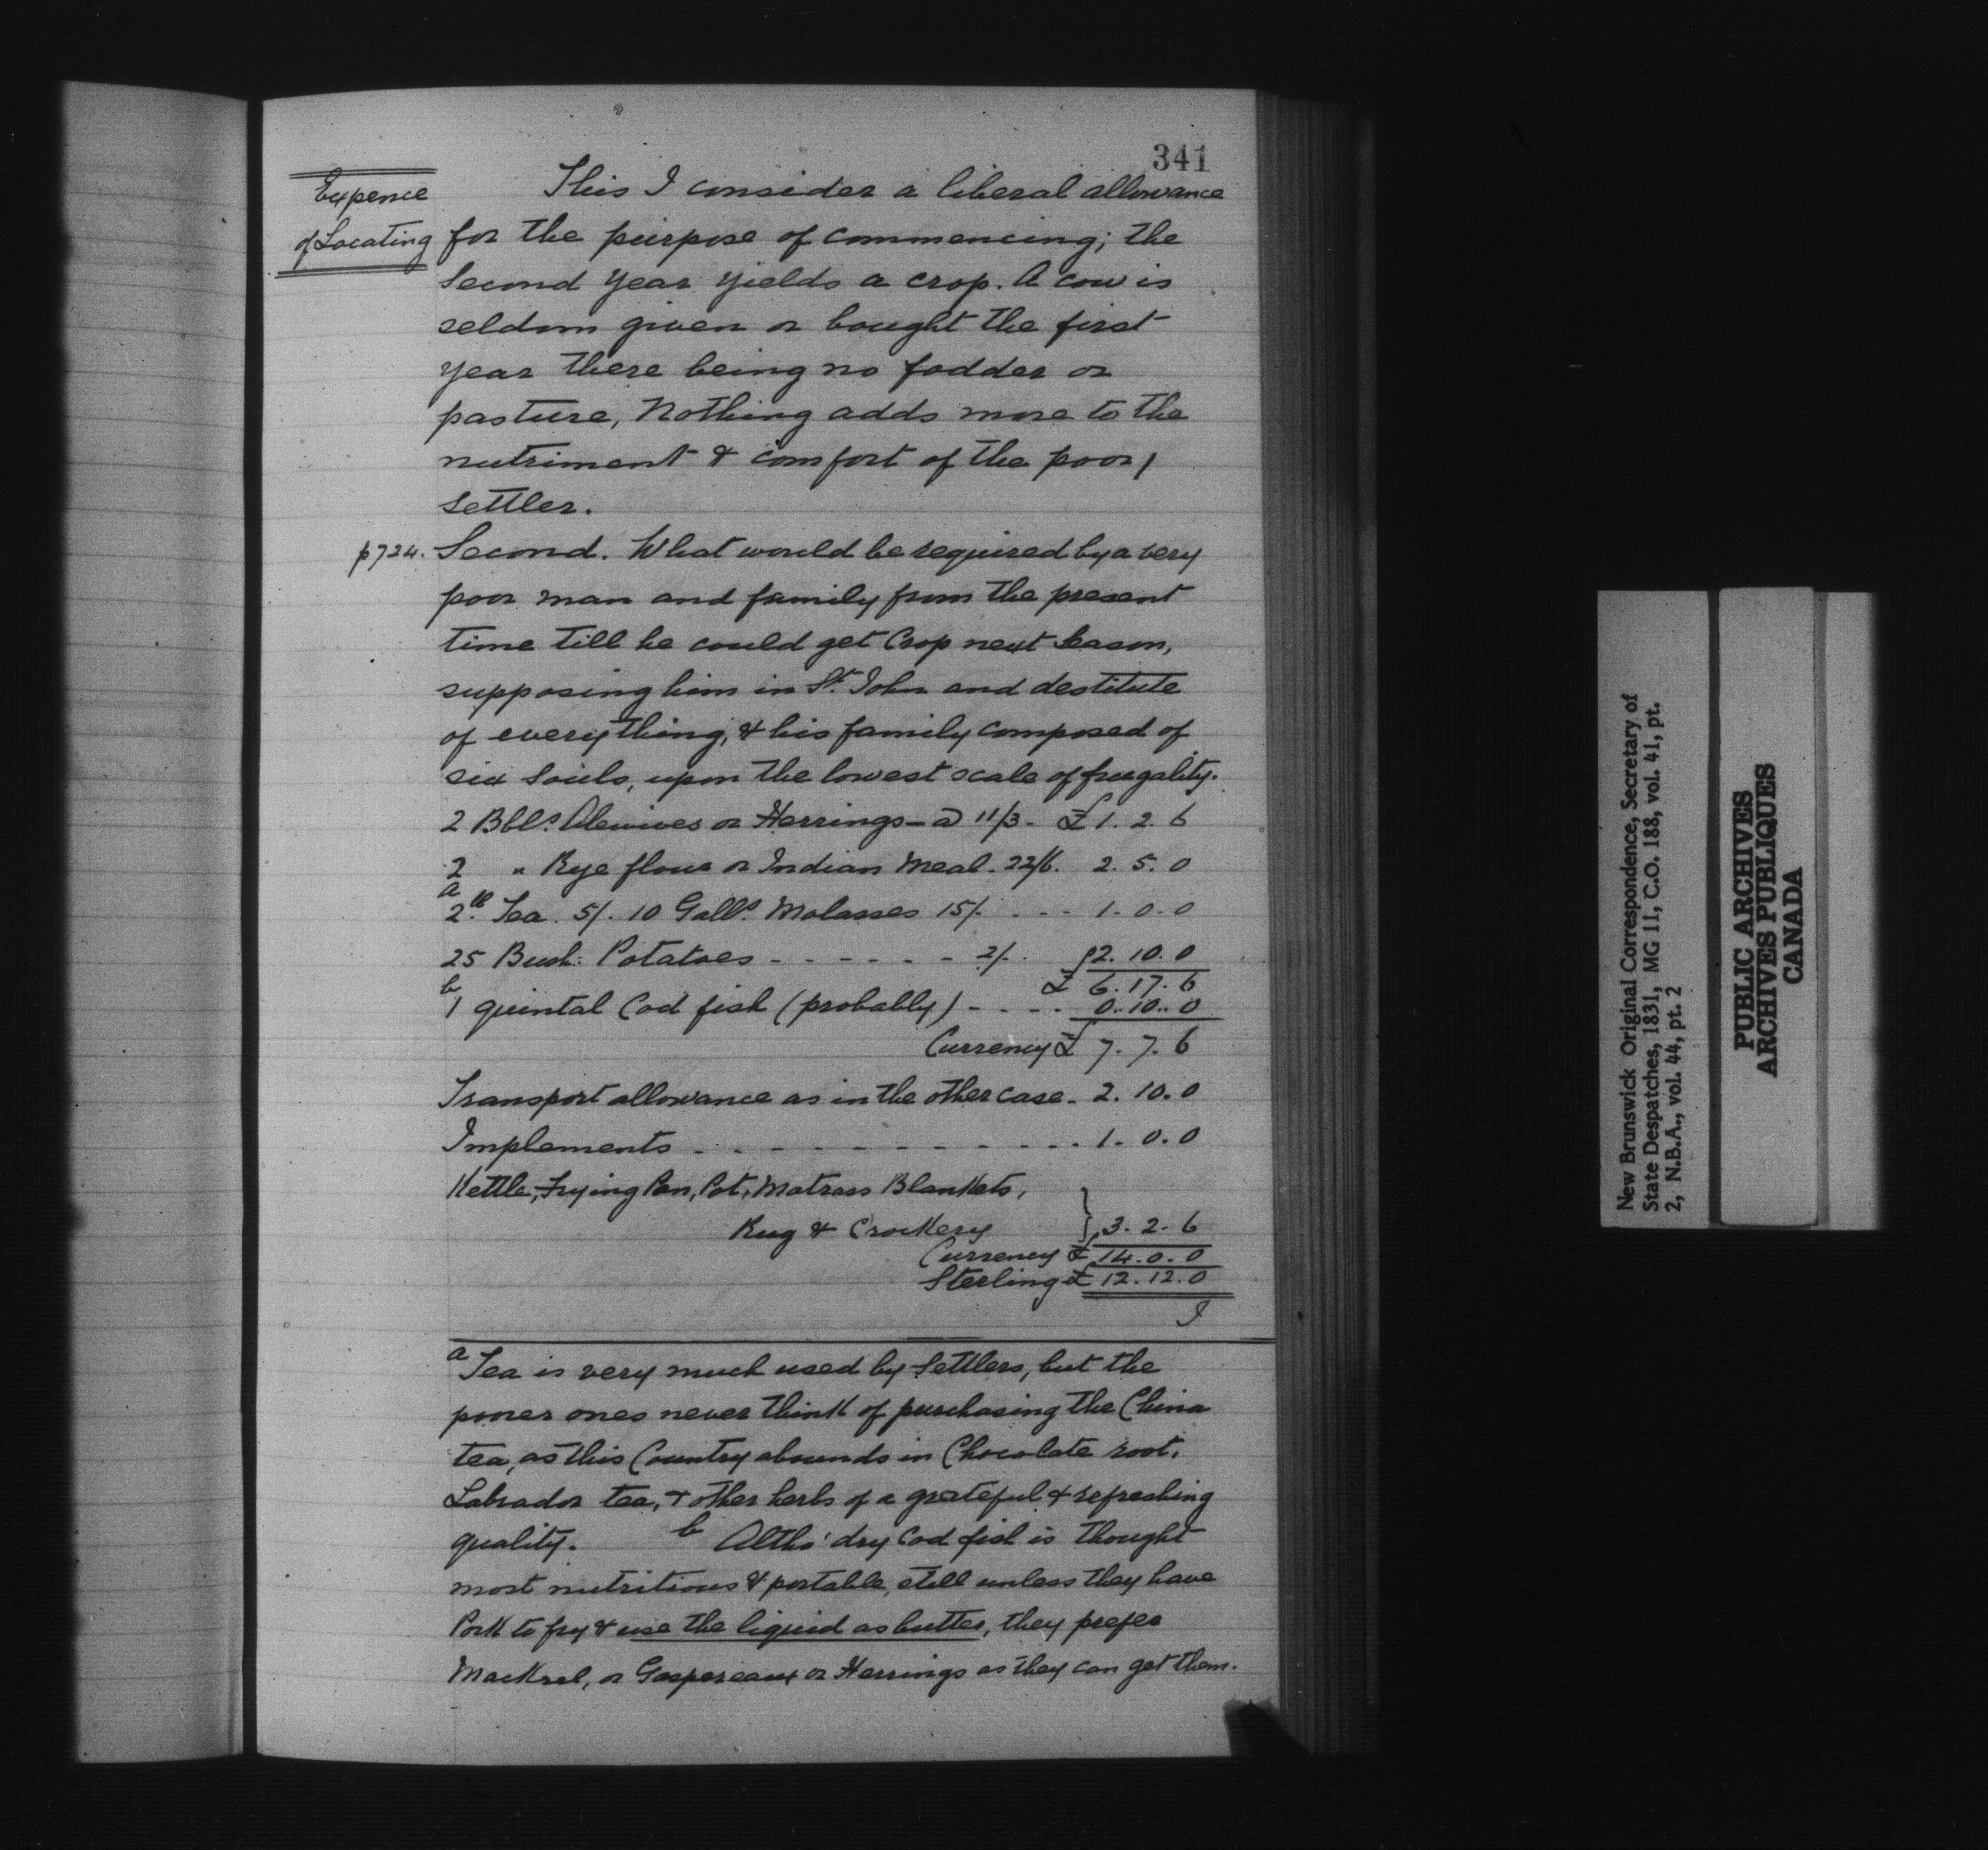 341
Expence
of Locating
This I consider a liberal allowance
for the purpose of commencing; the
Second Year yields a crop. A cow is
seldom given or bought the first
year there being no fodder or
pasture, Nothing adds more to the
nutriment & comfort of the poor
settler.
p724. Second. What would be required by a very
poor man and family from the present
time till he could get Crop next Season,
supposing him in St. John and destitute
of every thing, & his family composed of
six Souls, upon the lowest scale of frugality.
2 Bbls. Alewives or Herrings - @ 11/3 - £ 1. 2. 6
2 " Rye flour or Indian Meal. 22/6. 2. 5. 0
a
2 lb. Tea. 5/. 10 Galls. Molasses 15/. - - - 1. 0. 0
25 Bush: Potatoes - - - - - - 2/. £2. 10. 0
£ 6. 17. 6
b
1 quintal Cod fish (probably) - - - - 0. 10. 0
Currency £ 7. 7. 6
Transport allowance as in the other case - 2. 10. 0
Implements - - - - - - - - - - - 1. 0. 0
Kettle, Frying Pan, Pot, Matrass Blankets,
Rug & Crockery } 3. 2. 6
Currency £ 14. 0. 0
Sterling £ 12. 12. 0
I
a Tea is very much used by Settlers, but the
poorer ones never think of purchasing the China
tea, as this Country abounds in Chocolate root,
Labrador tea, & other herbs of a grateful & refreshing
quality. b Altho' dry Cod fish is thought
most nutritious & portable, still unless they have
Pork to fry & use the liquid as butter, they prefer
Mackrel, or Gaspereaux or Herrings as they can get them.
New Brunswick Original Correspondence, Secretary of
State Despatches, 1831, MG 11, C.O. 188, vol. 41, pt.
2, N.B.A., vol. 44, pt. 2
PUBLIC ARCHIVES
ARCHIVES PUBLIQUES
CANADA